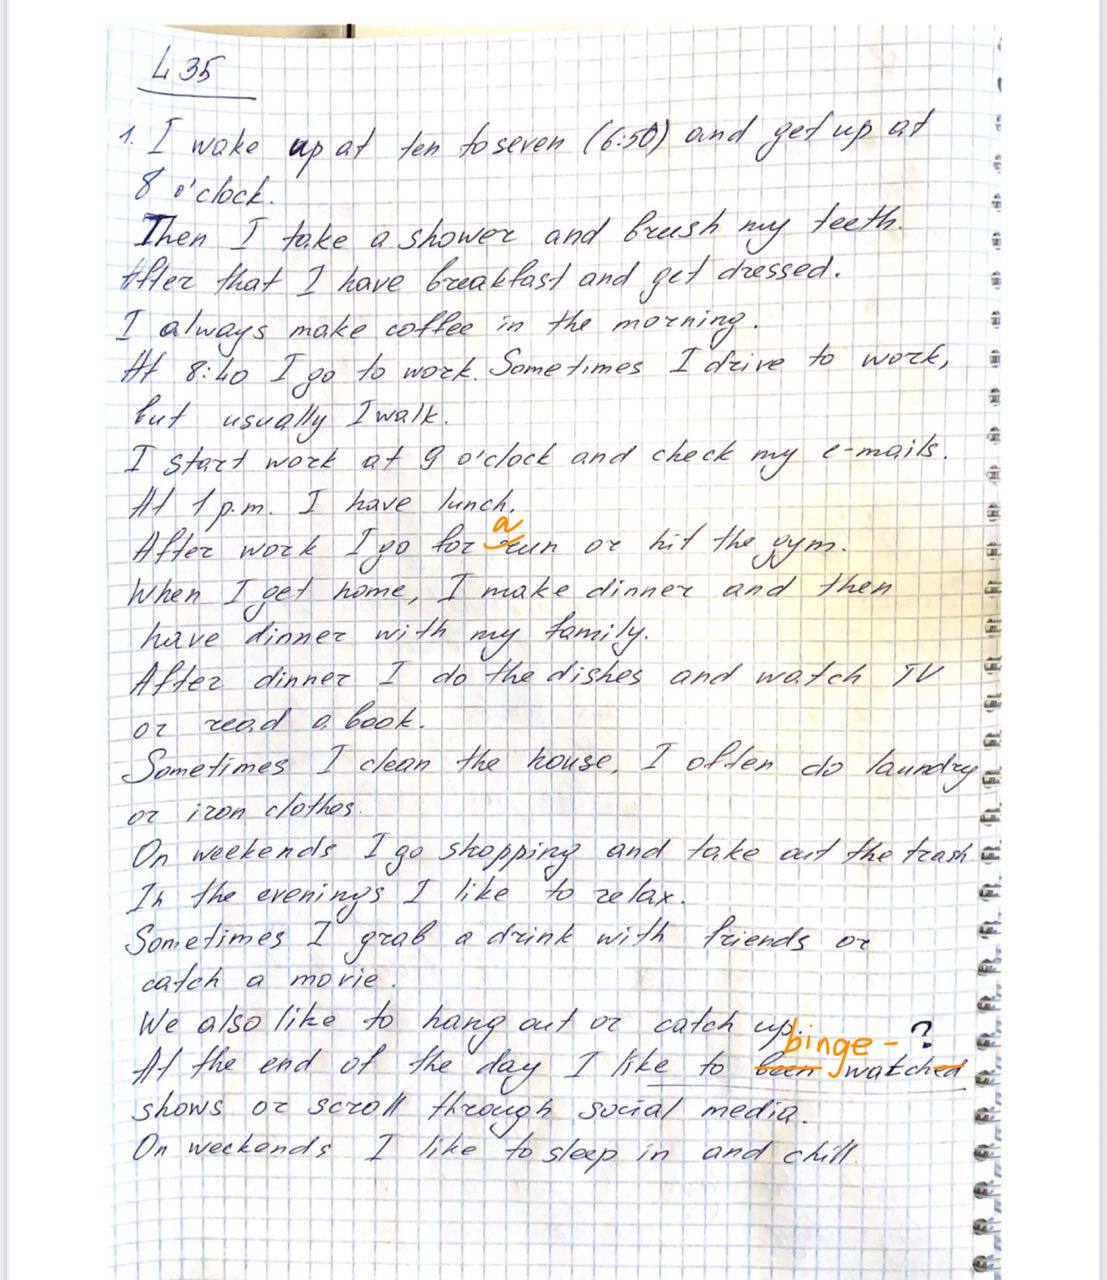 L 35
1. I wake up at ten to seven (6:50) and get up at
8 o'clock.
Then I take a shower and brush my teeth.
After that I have breakfast and get dressed.
I always make coffee in the morning.
At 8:40 I go to work. Sometimes I drive to work,
but usually I walk.
I start work at 9 o'clock and check my e-mails.
At 1 p.m. I have lunch.
a
After work I go for run or hit the gym.
When I get home, I make dinner and then
have dinner with my family.
After dinner I do the dishes and watch TV
or read a book.
Sometimes I clean the house, I often do laundry
or iron clothes.
On weekends I go shopping and take out the trash
In the evenings I like to relax.
Sometimes I grab a drink with friends or
catch a movie.
We also like to hang out or catch up.
binge - ?
At the end of the day I like to been watched
shows or scroll through social media.
On weekends I like to sleep in and chill.